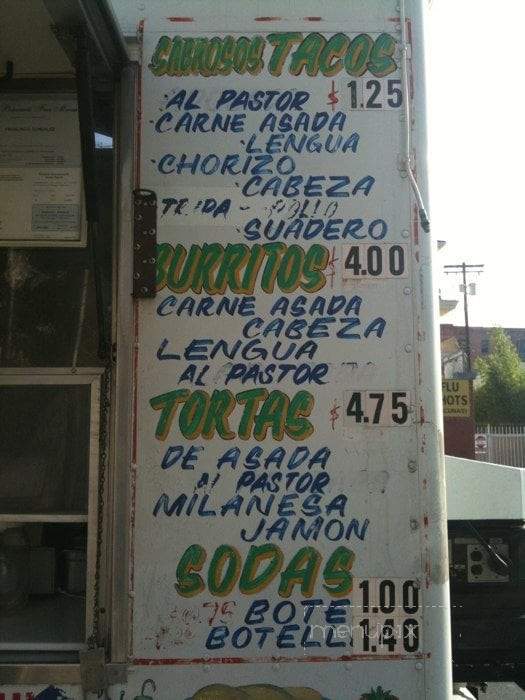 SABROSOS TACOS
· AL PASTOR $ 1.25
· CARNE ASADA
· LENGUA
· CHORIZO
· CABEZA
· SUADERO
BURRITOS $ 4.00
CARNE ASADA
CABEZA
LENGUA
AL PASTOR
TORTAS $ 4.75
DE ASADA
AL PASTOR
MILANESA
JAMON
SODAS
BOTE 1.00
BOTELL 1.40
menupix
FLU
HOTS